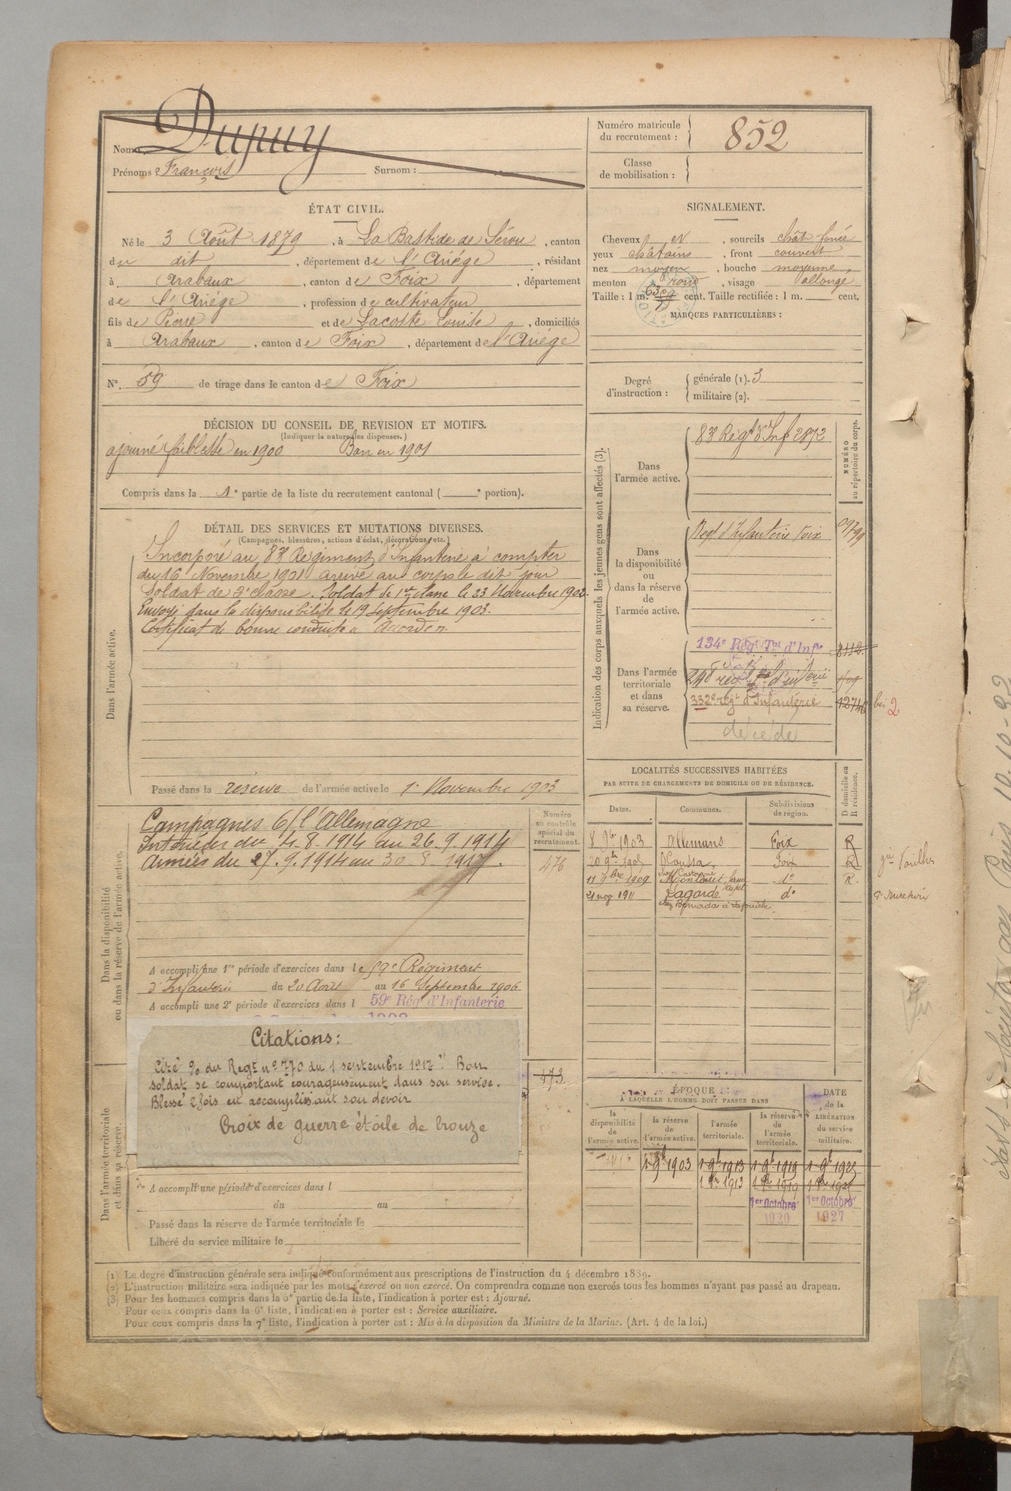 Nom : Dupuy
Prénoms : François Surnom :
Numéro matricule du recrutement : 852
Classe de mobilisation :
ÉTAT CIVIL.
Né le 3 Août 1879, à La Bastide de Sérou, canton
du dit, département de l'Ariége, résidant
à Arabaux, canton de Foix, département
de l'Ariége, profession de cultivateur
fils de Pierre et de Lacoste Louise, domiciliés
à Arabaux, canton de Foix, département de l'Ariége
N° 59 de tirage dans le canton de Foix
SIGNALEMENT.
Cheveux et, sourcils chât foncé
yeux châtains, front couvert
nez moyen, bouche moyenne
menton rond, visage allongé
Taille : 1 m. 63 cent. Taille rectifiée : 1 m. cent.
MARQUES PARTICULIÈRES :
Degré d'instruction : générale (1). 3
militaire (2).
DÉCISION DU CONSEIL DE REVISION ET MOTIFS.
(Indiquer la nature des dispenses.)
ajourné faiblesse en 1900 Bon en 1901
Compris dans la 1e partie de la liste du recrutement cantonal ( e portion).
DÉTAIL DES SERVICES ET MUTATIONS DIVERSES.
(Campagnes, blessures, actions d'éclat, décorations, etc.)
Dans l'armée active.
Incorporé au 83e Régiment d'Infanterie à compter
du 16 Novembre 1901 arrivé au corps le dit jour
Soldat de 2e classe. Soldat de 1re classe le 23 Novembre 1902
Envoyé dans la disponibilité le 19 septembre 1903.
Certificat de bonne conduite accordé
Passé dans la réserve de l'armée active le 1er Novembre 1903
Indication des corps auxquels les jeunes gens sont affectés (3).
NUMÉRO au répertoire du corps.
Dans l'armée active.
83e Régt d'Inf 2872
Dans la disponibilité ou dans la réserve de l'armée active.
Regt d'Infanterie Foix
Dans l'armée territoriale et dans sa réserve.
134e Régt Tal d'Infie
332e régt d'Infanterie
décédé
Dans la disponibilité ou dans la réserve de l'armée active.
Campagnes c/ l'Allemagne
Intérieur du 4.8.1914 au 26.9.1914
Armées du 27.9.1914 au 30.8.1917.
Numéro au contrôle spécial du recrutement.
476
A accompli une 1re période d'exercices dans le 59e Régiment
d'Infanterie du 20 Août au 16 Septembre 1906
A accompli une 2e période d'exercices dans l 59e Rég d'Infanterie
Citations :
Cité %o du Regt n° 770 du 1 septembre 1917 " Bon
soldat se comportant courageusement dans son service.
Blessé 2 fois en accomplissant son devoir
Croix de guerre étoile de bronze
473
Dans l'armée territoriale et dans sa réserve.
A accompli une période d'exercices dans l
du au
Passé dans la réserve de l'armée territoriale le
Libéré du service militaire le
LOCALITÉS SUCCESSIVES HABITÉES
PAR SUITE DE CHANGEMENTS DE DOMICILE OU DE RÉSIDENCE.
D domicile ou R résidence.
Dates. Communes. Subdivisions de région.
8 9bre 1903 Allemans Foix R
20 Foix R
11 1909 d° R
21 1911 Lagarde d°
ÉPOQUE
A LAQUELLE L'HOMME DOIT PASSER DANS
DATE de la LIBÉRATION du service militaire.
la disponibilité de l'armée active. la réserve de l'armée active. l'armée territoriale. la réserve de l'armée territoriale.
1 9bre 1903 1 9bre 1913 1 9bre 1919 1 9bre 1925
1er Octobre 1920 1er Octobre 1927
(1) Le degré d'instruction générale sera indiqué conformément aux prescriptions de l'instruction du 4 décembre 1889.
(2) L'instruction militaire sera indiquée par les mots : exercé ou non exercé. On comprendra comme non exercés tous les hommes n'ayant pas passé au drapeau.
(3) Pour les hommes compris dans la 5e partie de la liste, l'indication à porter est : Ajourné.
Pour ceux compris dans la 6e liste, l'indication à porter est : Service auxiliaire.
Pour ceux compris dans la 7e liste, l'indication à porter est : Mis à la disposition du Ministre de la Marine. (Art. 4 de la loi.)